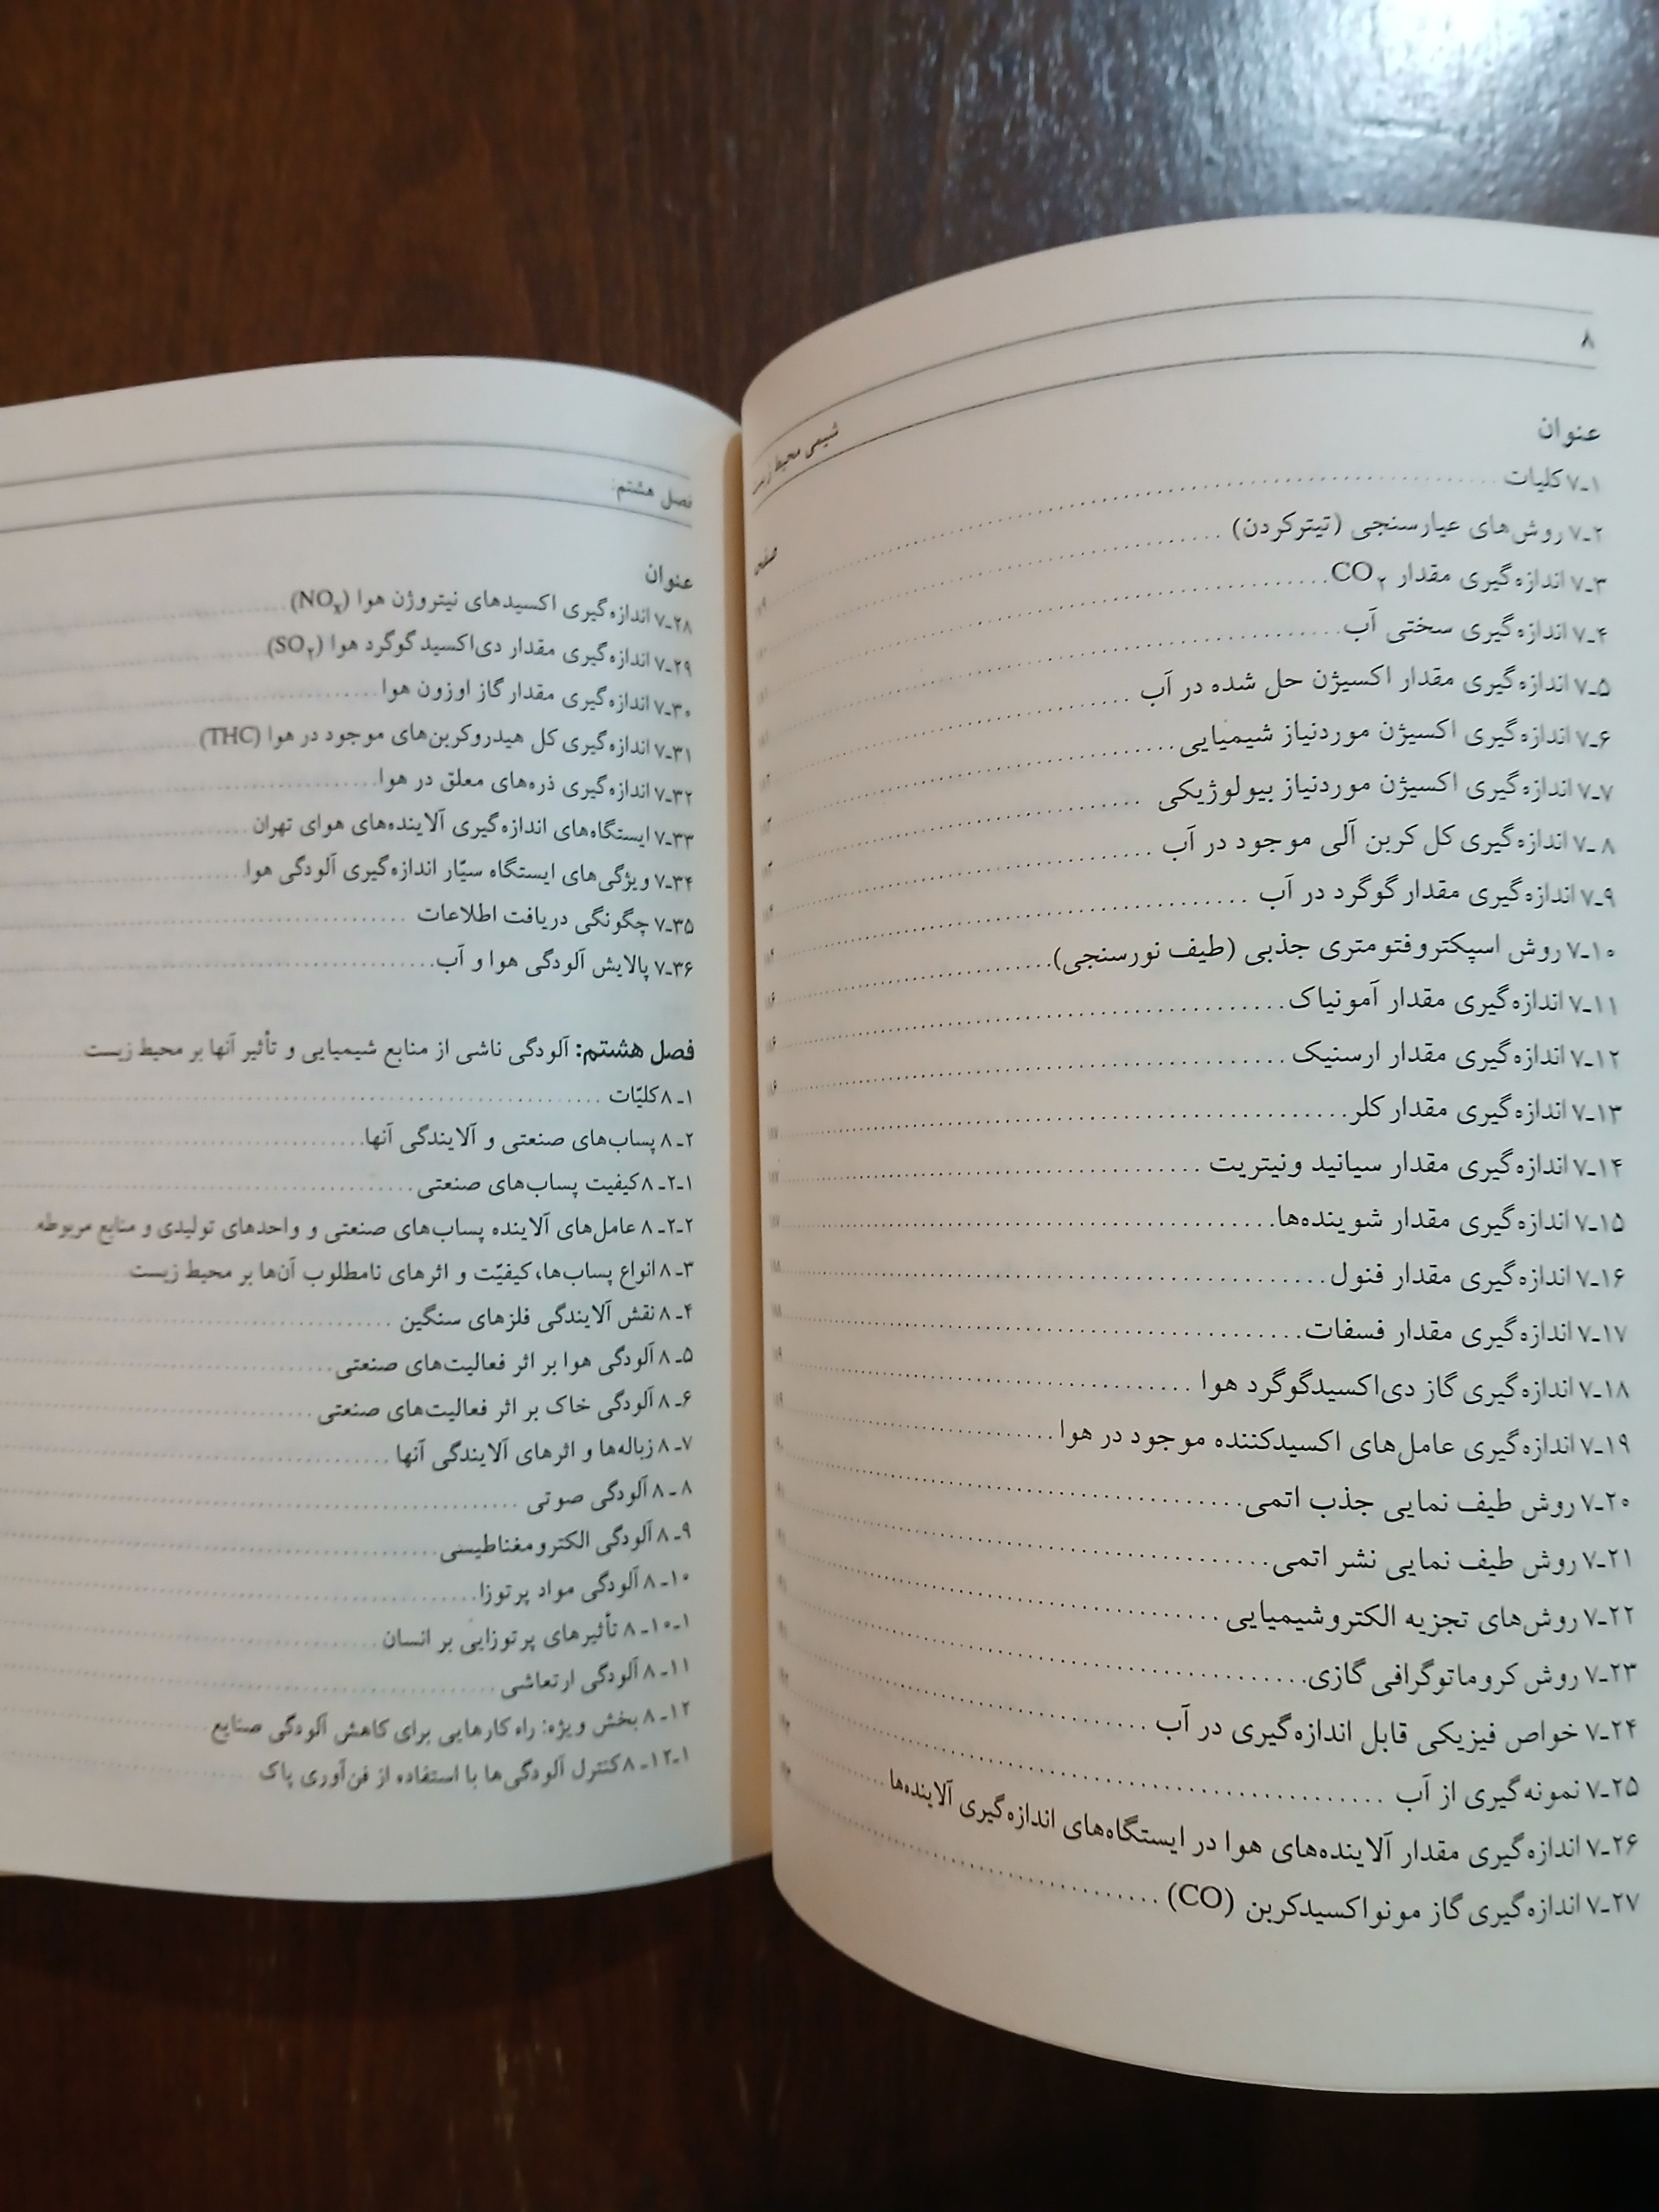 ۸
شیمی محیط زیست
عنوان
صفحه
۷ـ۱ کلیات
۷ـ۲ روش‌های عیارسنجی (تیترکردن)
۷ـ۳ اندازه‌گیری مقدار CO۲
۷ـ۴ اندازه‌گیری سختی آب
۷ـ۵ اندازه‌گیری مقدار اکسیژن حل شده در آب
۷ـ۶ اندازه‌گیری اکسیژن موردنیاز شیمیایی
۷ـ۷ اندازه‌گیری اکسیژن موردنیاز بیولوژیکی
۷ـ۸ اندازه‌گیری کل کربن آلی موجود در آب
۷ـ۹ اندازه‌گیری مقدار گوگرد در آب
۷ـ۱۰ روش اسپکتروفتومتری جذبی (طیف نورسنجی)
۷ـ۱۱ اندازه‌گیری مقدار آمونیاک
۷ـ۱۲ اندازه‌گیری مقدار ارسنیک
۷ـ۱۳ اندازه‌گیری مقدار کلر
۷ـ۱۴ اندازه‌گیری مقدار سیانید ونیتریت
۷ـ۱۵ اندازه‌گیری مقدار شوینده‌ها
۷ـ۱۶ اندازه‌گیری مقدار فنول
۷ـ۱۷ اندازه‌گیری مقدار فسفات
۷ـ۱۸ اندازه‌گیری گاز دی‌اکسیدگوگرد هوا
۷ـ۱۹ اندازه‌گیری عامل‌های اکسیدکننده موجود در هوا
۷ـ۲۰ روش طیف نمایی جذب اتمی
۷ـ۲۱ روش طیف نمایی نشر اتمی
۷ـ۲۲ روش‌های تجزیه الکتروشیمیایی
۷ـ۲۳ روش کروماتوگرافی گازی
۷ـ۲۴ خواص فیزیکی قابل اندازه‌گیری در آب
۷ـ۲۵ نمونه‌گیری از آب
۷ـ۲۶ اندازه‌گیری مقدار آلاینده‌های هوا در ایستگاه‌های اندازه‌گیری آلاینده‌ها
۷ـ۲۷ اندازه‌گیری گاز مونواکسیدکربن (CO)
فصل هشتم:
عنوان
۷ـ۲۸ اندازه‌گیری اکسیدهای نیتروژن هوا (NOx)
۷ـ۲۹ اندازه‌گیری مقدار دی‌اکسید گوگرد هوا (SO۲)
۷ـ۳۰ اندازه‌گیری مقدار گاز اوزون هوا
۷ـ۳۱ اندازه‌گیری کل هیدروکربن‌های موجود در هوا (THC)
۷ـ۳۲ اندازه‌گیری ذره‌های معلق در هوا
۷ـ۳۳ ایستگاه‌های اندازه‌گیری آلاینده‌های هوای تهران
۷ـ۳۴ ویژگی‌های ایستگاه سیّار اندازه‌گیری آلودگی هوا
۷ـ۳۵ چگونگی دریافت اطلاعات
۷ـ۳۶ پالایش آلودگی هوا و آب
فصل هشتم: آلودگی ناشی از منابع شیمیایی و تأثیر آنها بر محیط زیست
۸ـ۱ کلیّات
۸ـ۲ پساب‌های صنعتی و آلایندگی آنها
۸ـ۲ـ۱ کیفیت پساب‌های صنعتی
۸ـ۲ـ۲ عامل‌های آلاینده پساب‌های صنعتی و واحدهای تولیدی و منابع مربوطه
۸ـ۳ انواع پساب‌ها، کیفیّت و اثرهای نامطلوب آن‌ها بر محیط زیست
۸ـ۴ نقش آلایندگی فلزهای سنگین
۸ـ۵ آلودگی هوا بر اثر فعالیت‌های صنعتی
۸ـ۶ آلودگی خاک بر اثر فعالیت‌های صنعتی
۸ـ۷ زباله‌ها و اثرهای آلایندگی آنها
۸ـ۸ آلودگی صوتی
۸ـ۹ آلودگی الکترومغناطیسی
۸ـ۱۰ آلودگی مواد پرتوزا
۸ـ۱۰ـ۱ تأثیرهای پرتوزایی بر انسان
۸ـ۱۱ آلودگی ارتعاشی
۸ـ۱۲ بخش ویژه: راه‌کارهایی برای کاهش آلودگی صنایع
۸ـ۱۲ـ۱ کنترل آلودگی‌ها با استفاده از فن‌آوری پاک